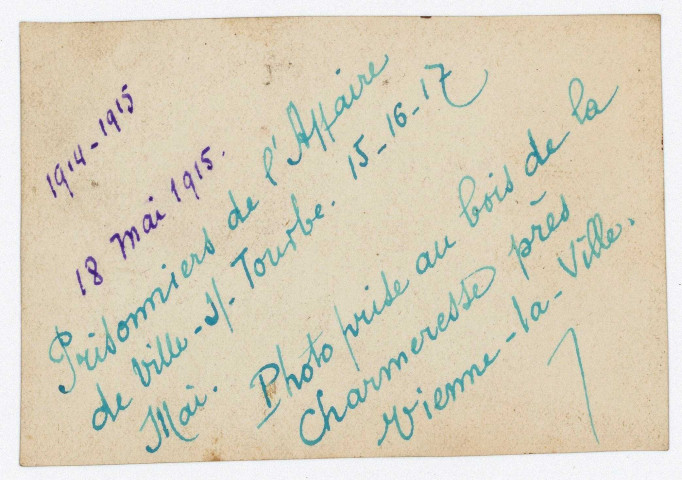 1914-1915
18 Mai 1915.
Prisonniers de l'Affaire
de Ville-s/-Tourbe. 15-16-17
Mai. Photo prise au bois de la
Charmeresse près
Vienne-la-Ville.